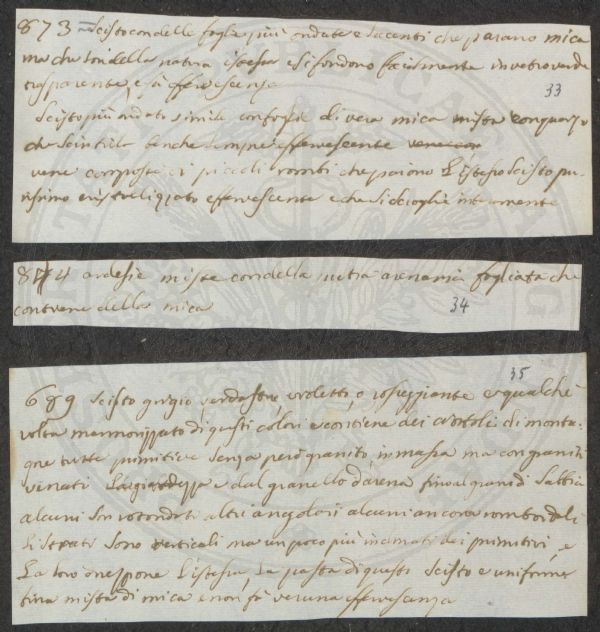 873 Scisto con delle foglie più ondate e lucenti che parano mica
ma che son della natura istessa e si fondono facilmente in vetro verde
trasparente, e fà effervescenza
33
Scisto più ondato simile con foglie di vera mica mista con quarzo
che scintila benche sempre effervescente
vene composte di piccoli rombi che paiono l'istesso scisto pu-
rissimo cristalligiato effervescente e che si discioglie interamente
874 ardesie miste con della pietra arenaria fogliata che
contiene della mica
34
35
689 scisto grigio, verdastre, violetto, o rosseggiante e qualche
volta marmorizzato di questi colori e contiene dei ciottoli di monta-
gne tutte primitive senza però granito in massa ma con graniti
venati e dal granello d'arena fino al grandi sabbia
alcuni son rotondati altri angolari alcuni ancora romboidali
li strati sono verticali ma un poco più inclinati dei primitivi, e
La loro l'istessa, la pasta di questo scisto e uniforme
mista di mica e non fà veruna effervescenza